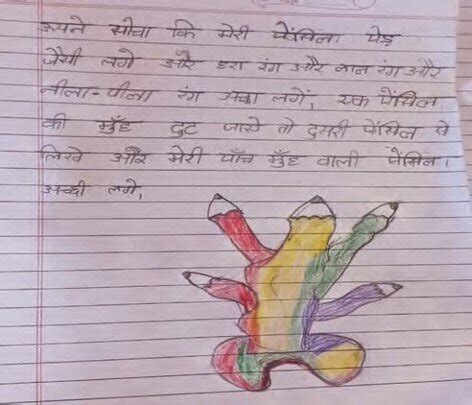 हमने सोचा कि मेरी पेंसिल पेड़
जैसी लगे और हरा रंग और लाल रंग और
नीला-पीला रंग अच्छा लगें, एक पेंसिल
की मुँह टुट जाये तो दुसरी पेंसिल से
लिखे और मेरी पाँच मुँह वाली पेंसिल।
अच्छी लगे,